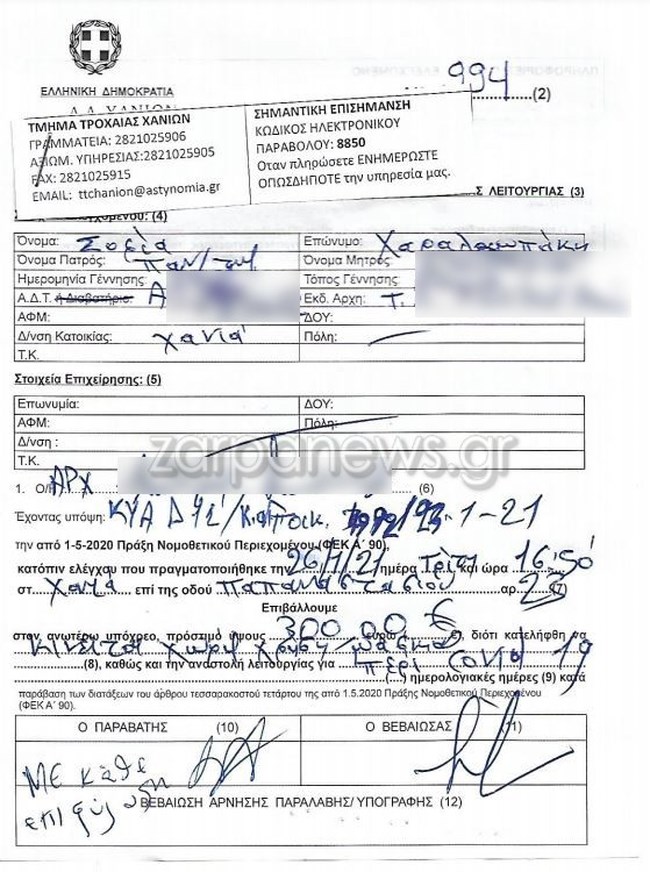 ΕΛΛΗΝΙΚΗ ΔΗΜΟΚΡΑΤΙΑ
994 (2)
ΤΜΗΜΑ ΤΡΟΧΑΙΑΣ ΧΑΝΙΩΝ
ΓΡΑΜΜΑΤΕΙΑ: 2821025906
ΑΞΙΩΜ. ΥΠΗΡΕΣΙΑΣ:2821025905
FAX: 2821025915
EMAIL: ttchanion@astynomia.gr
ΣΗΜΑΝΤΙΚΗ ΕΠΙΣΗΜΑΝΣΗ
ΚΩΔΙΚΟΣ ΗΛΕΚΤΡΟΝΙΚΟΥ
ΠΑΡΑΒΟΛΟΥ: 8850
Οταν πληρώσετε ΕΝΗΜΕΡΩΣΤΕ
ΟΠΩΣΔΗΠΟΤΕ την υπηρεσία μας.
Σ ΛΕΙΤΟΥΡΓΙΑΣ (3)
(4)
Όνομα: Σοφία Επώνυμο: Χαραλαμπάκη
Όνομα Πατρός: Παν/της Όνομα Μητρός:
Ημερομηνία Γέννησης Τόπος Γέννησης:
Α.Δ.Τ. ή Διαβατήριο: Α Εκδ. Αρχη: Τ.
ΑΦΜ: ΔΟΥ:
Δ/νση Κατοικίας: Χανιά Πόλη:
Τ.Κ.
Στοιχεία Επιχείρησης: (5)
Επωνυμία: ΔΟΥ:
ΑΦΜ: Πόλη:
Δ/νση :
Τ.Κ.
zarpanews.gr
1. Ο/Η ΑΡΧ (6)
Έχοντας υπόψη: ΚΥΑ Δ1α/Γ.Π.οικ. 23-1-21
την από 1-5-2020 Πράξη Νομοθετικού Περιεχομένου (ΦΕΚ Α΄ 90),
κατόπιν ελέγχου που πραγματοποιήθηκε την 26/1/21 ημέρα Τρίτη και ώρα 16:50
στ Χανιά επί της οδού Παπαναστασίου αρ. 23 (7)
Επιβάλλουμε
στον ανωτέρω υπόχρεο, πρόστιμο ύψους 300 00 € ευρώ €, διότι κατελήφθη να
Κινείται χωρίς χρήση μάσκας
(8), καθώς και την αναστολή λειτουργίας για περί Covid 19 (...) ημερολογιακές ημέρες (9) κατά
παράβαση των διατάξεων του άρθρου τεσσαρακοστού τετάρτου της από 1.5.2020 Πράξης Νομοθετικού Περιεχομένου
(ΦΕΚ Α΄ 90).
Ο ΠΑΡΑΒΑΤΗΣ (10) Ο ΒΕΒΑΙΩΣΑΣ (11)
ΜΕ κάθε
επιφύλαξη
ΒΕΒΑΙΩΣΗ ΑΡΝΗΣΗΣ ΠΑΡΑΛΑΒΗΣ/ ΥΠΟΓΡΑΦΗΣ (12)